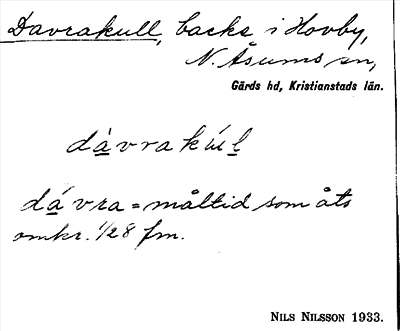 Davrakull, backe i Hovby,
N. Åsums sn,
Gärds hd, Kristianstads län.
dàvrakúl
dávra = måltid som åts
omkr. 1/2 8 fm.
NILS NILSSON 1933.